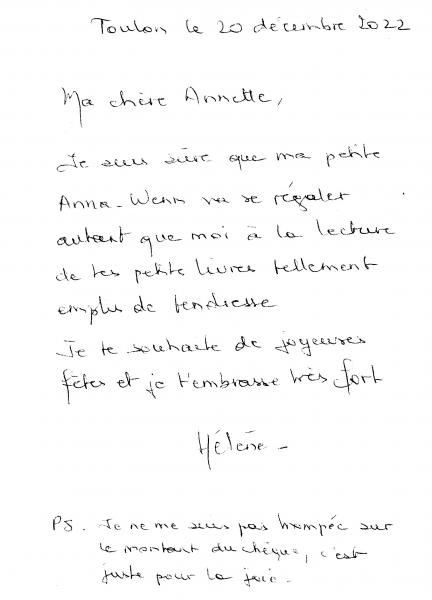 Toulon le 20 décembre 2022
Ma chère Annette,
Je suis sûre que ma petite
Anna-Wenn va se régaler
autant que moi à la lecture
de tes petits livres tellement
emplis de tendresse
Je te souhaite de joyeuses
fêtes et je t'embrasse très fort
Hélène -
PS. Je ne me suis pas trompée sur
le montant du chèque, c'est
juste pour la joie.